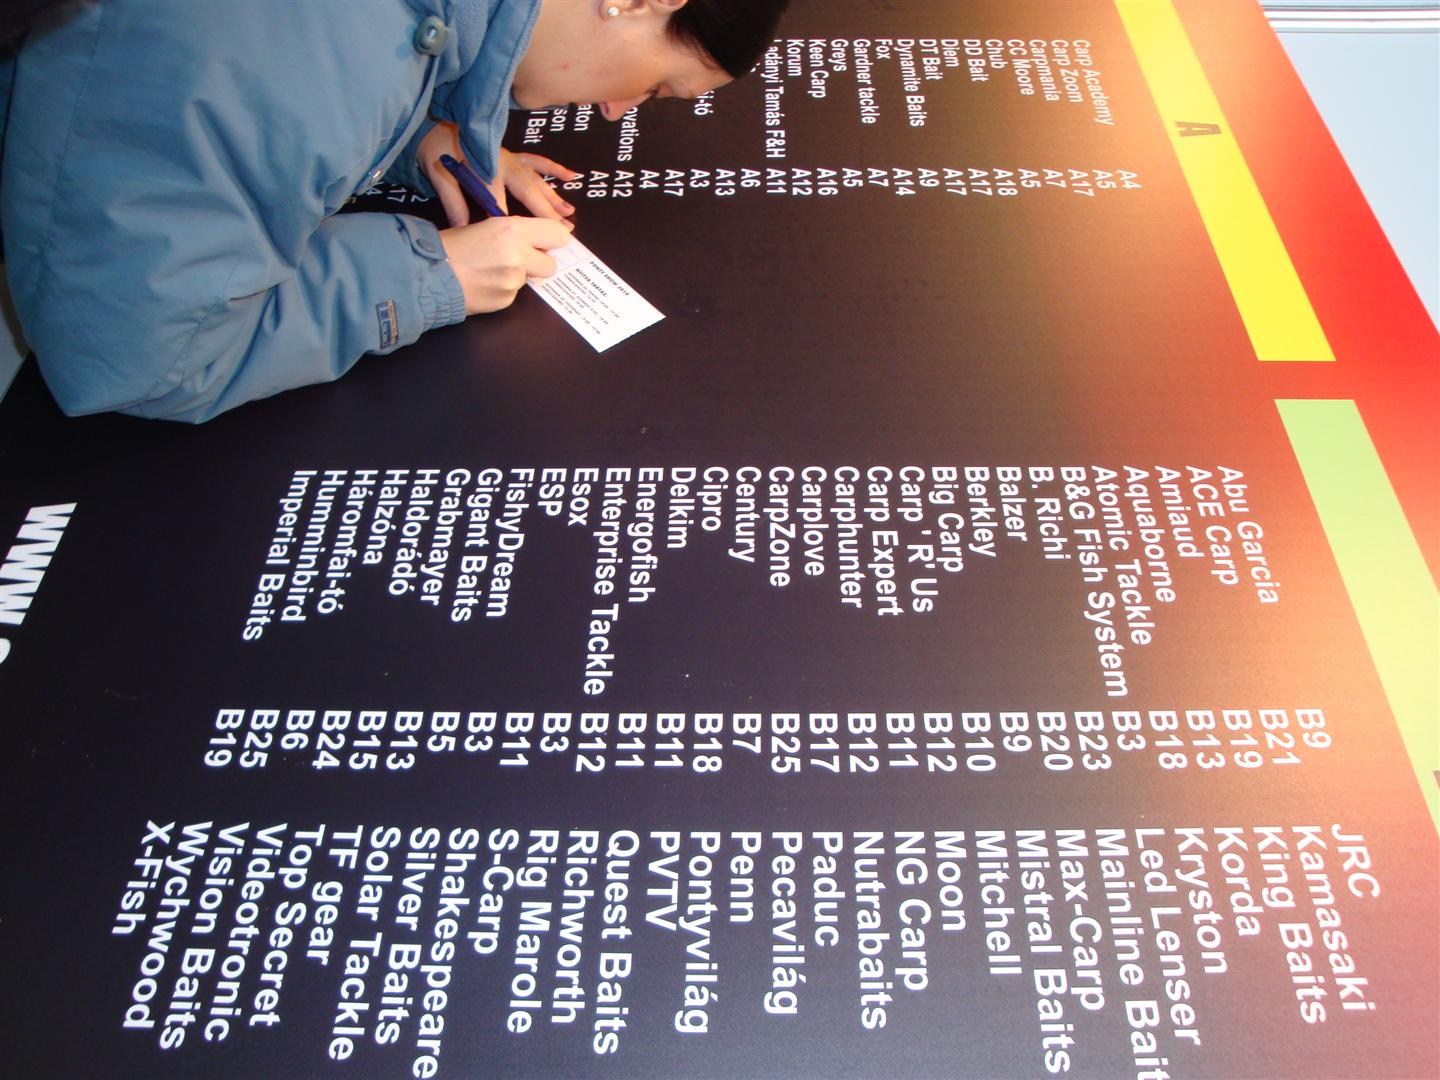 A
Carp Academy A4
Carp Zoom A5
Carpmania A17
CC Moore A7
Chub A5
DD Bait A18
Diem A17
DT Bait A17
Dynamite Baits A9
Fox A14
Gardner tackle A7
Greys A5
Keen Carp A16
Korum A12
Tamás F&H A11
A6
A13
A3
A17
A4
A12
A18
A8
Bait
Abu Garcia B9
ACE Carp B21
Amiaud B19
Aquaborne B13
Atomic Tackle B18
B&G Fish System B3
B. Richi B23
Balzer B20
Berkley B9
Big Carp B10
Carp 'R' Us B12
Carp Expert B11
Carphunter B12
Carplove B17
CarpZone B25
Century B7
Cipro B18
Delkim B11
Energofish B11
Enterprise Tackle B12
Esox B3
ESP B11
FishyDream B3
Gigant Baits B5
Grabmayer B13
Haldorádó B15
Halzóna B24
Háromfai-tó B6
Humminbird B25
Imperial Baits B19
JRC
Kamasaki
King Baits
Korda
Kryston
Led Lenser
Mainline Bait
Max-Carp
Mistral Baits
Mitchell
Moon
NG Carp
Nutrabaits
Paduc
Pecavilág
Penn
Pontyvilág
PVTV
Quest Baits
Richworth
Rig Marole
S-Carp
Shakespeare
Silver Baits
Solar Tackle
TF gear
Top Secret
Videotronic
Vision Baits
Wychwood
X-Fish
www
PONTY SHOW 2010
NYITVA TARTÁS: